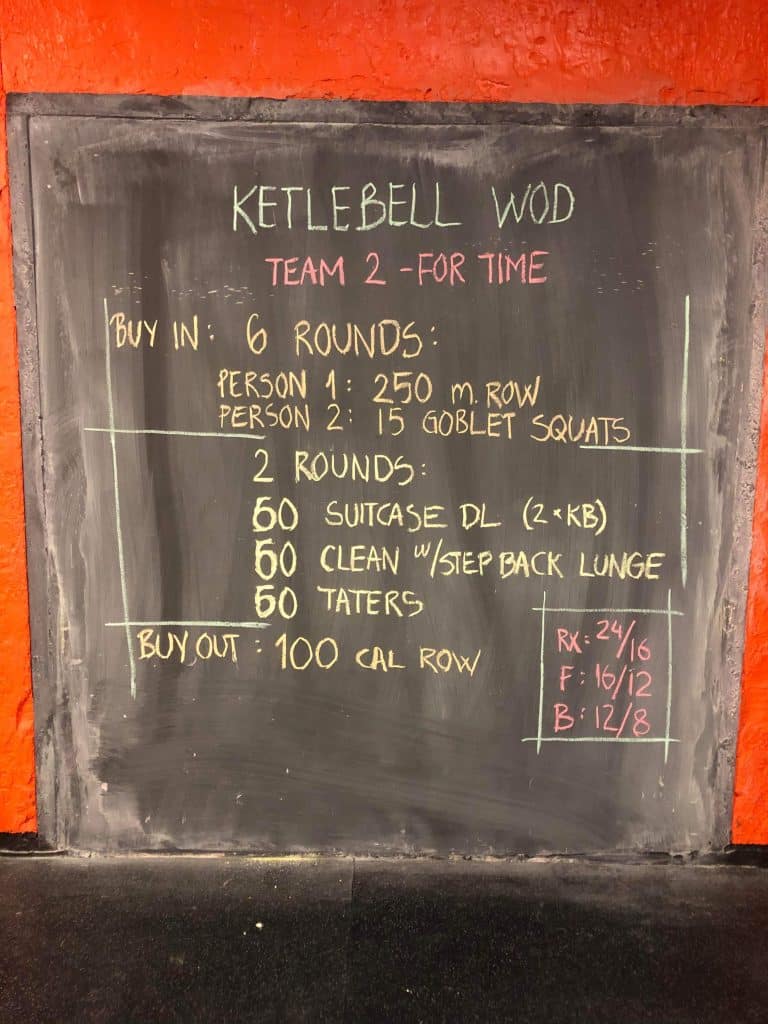 KETLEBELL WOD
TEAM 2 - FOR TIME
BUY IN: 6 ROUNDS:
PERSON 1: 250 m. ROW
PERSON 2: 15 GOBLET SQUATS
2 ROUNDS:
50 SUITCASE DL (2×KB)
50 CLEAN w/STEP BACK LUNGE
50 TATERS
BUY OUT: 100 CAL ROW
RX: 24/16
F: 16/12
B: 12/8